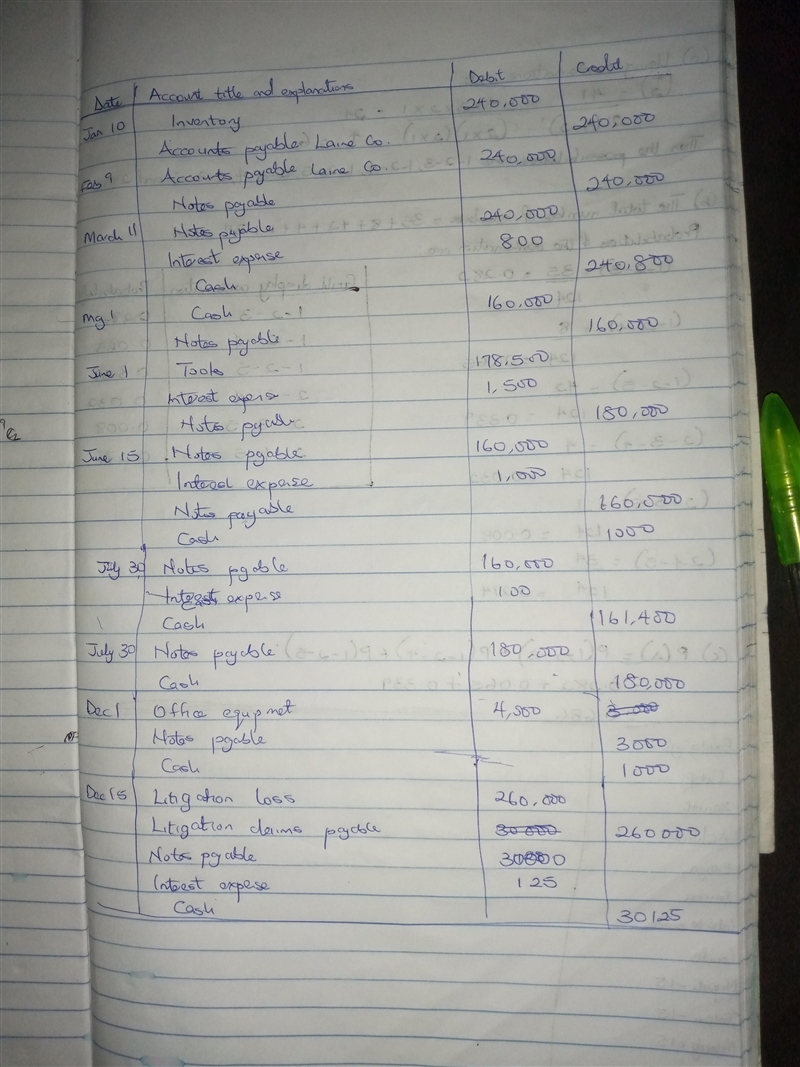 Date Account title and explanations Debit Credit
Jan 10 Inventory 240,000
Accounts payable Laine Co. 240,000
Feb 9 Accounts payable Laine Co. 240,000
Notes payable 240,000
March 11 Notes payable 240,000
Interest expense 800
Cash 240,800
My 1 Cash 160,000
Notes payable 160,000
June 1 Tools 178,500
Interest expense 1,500
Notes payable 180,000
June 15 Notes pgable 160,000
Interest expense 1,000
Notes payable 160,000
Cash 1000
July 30 Notes pgable 160,000
Interest expense 100
Cash 161,400
July 30 Notes payable 180,000
Cash 180,000
Dec 1 Office equpmet 4,500
Notes pgable 3000
Cash 1000
Dec 15 Litigation loss 260,000
Litigation claims payable 260000
Notes pgable 30000
Interest expese 125
Cash 30125